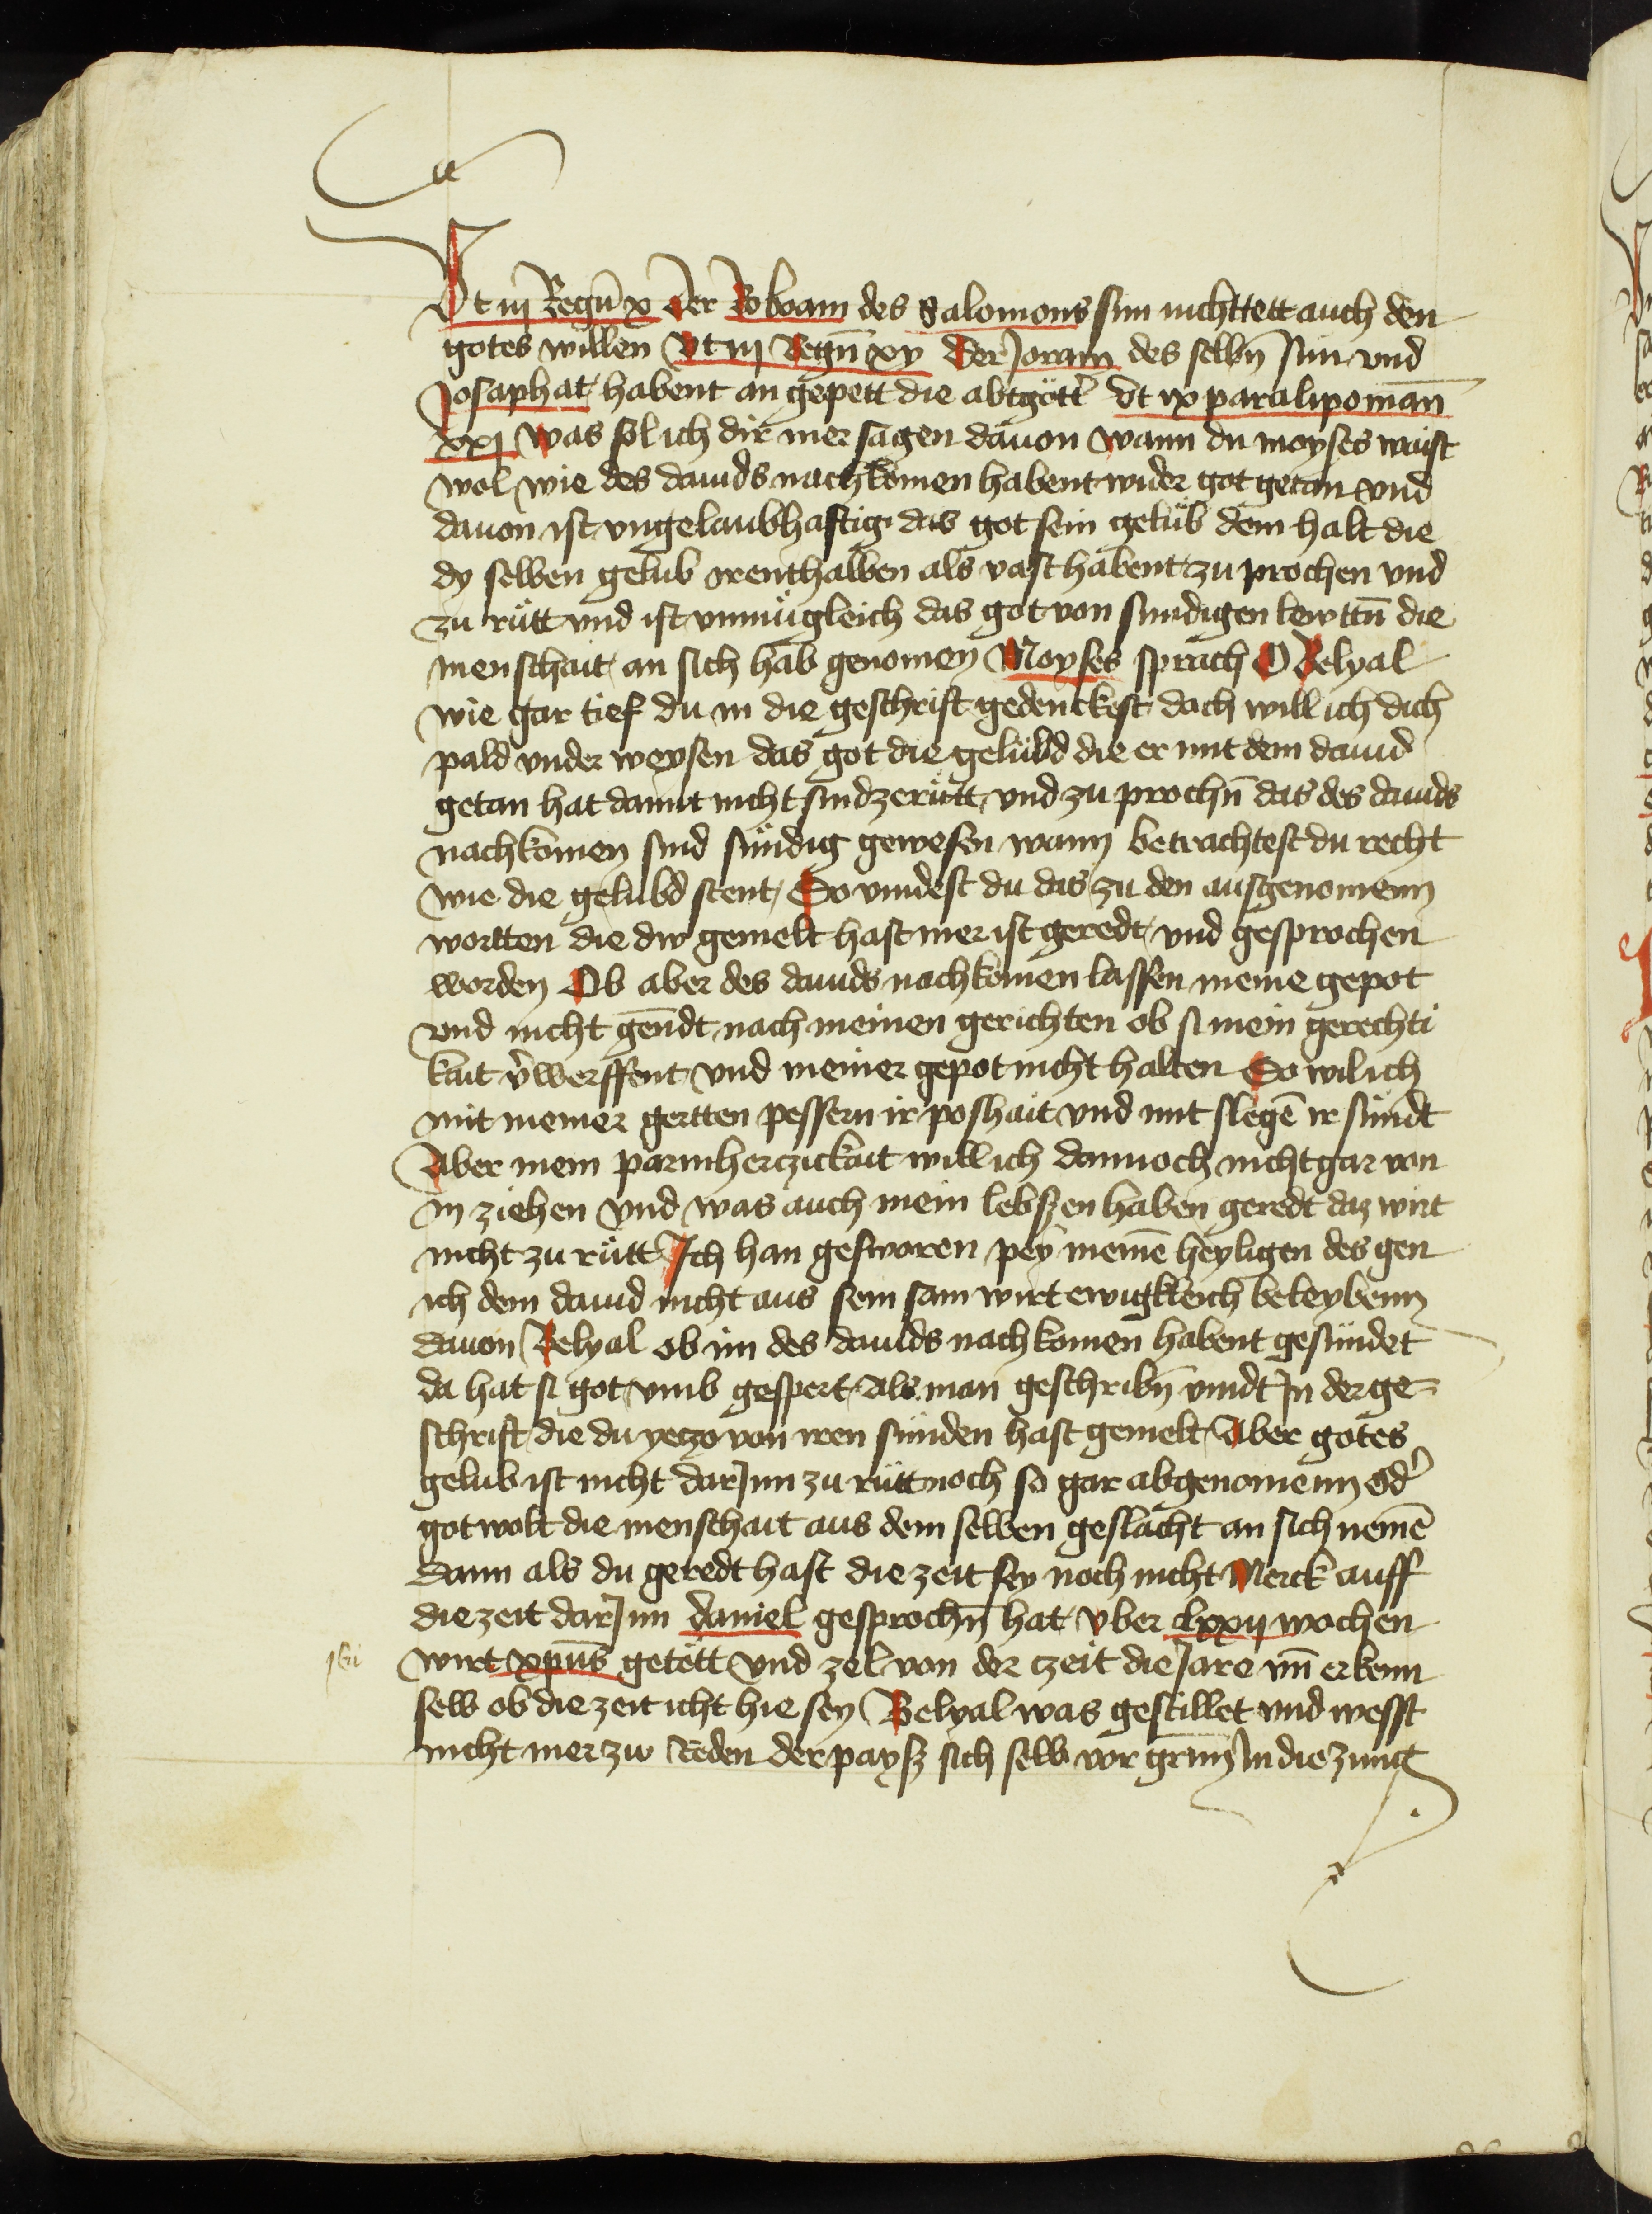 Vt iij Regū x der Roboam des Salomons sun nichttett auch den
gotes willen Vt iij Regū xv der Joram des selbn̄ sun vnd
Josaphat habent an gepett die abtgött' Vt ix paralipomān
xxj was sol ich dir mer sagen dauon wann du moyses waist
wol wie des dauids nachkomen habent wider got getan vnd
dauon ist vngelaubhaftig das got sein gelüb dem halt die
dy selben gelub irenthalben als vast habent zu prochen vnd
zu rütt vnd ist vnmügleich das got von sundigen lewttn̄ die
menschait an sich hab genomen Moyses sprach O Belyal
wie gar tief du in die geschrift gedenckest doch will ich dich
pald vnder weysen das got die gelübd die er mit dem dauid
getan hat damit nicht sind zerütt vnd zu prochn̄ das des dauids
nachkomen sind sündig gewesen wann betrachtest du recht
wie die gelubd stent So vindest du das zu den ausgenomenn
wortten die dw gemelt hast mer ist geredt vnd gesprochen
worden Ob aber des dauids nachkomen lassen meine gepot
vnd nicht gen̄dt nach meinen gerichten ob si mein gerechti
kait v'werffent vnd meiner gepot nicht halten So wil ich
mit meiner gertten pessern ir poshait vnd mit slegē ir sündt
Aber mein parmherczickait will ich dannoch nicht gar von
in ziehen vnd was auch mein lebszen haben geredt daz wirt
nicht zu rütt Ich han gesworen pey meinē heyligen des gen
ich dem dauid nicht aus sein sam wirt ewigkleich beleybenn
dauon Belyal ob im des dauids nachkomen habent gesündet
da hat si got vmb gespert als man geschribn̄ vindt In der ge=
schrift die du yeczo von iren sünden hast gemelt Aber gotes
gelub ist nicht darJnn zu rütt noch so gar abgenomenn od'
got wolt die menschait aus dem selben geslächt an sich nemē
Dann als du geredt hast die zeit sey noch nicht Merck auff
die zeit darJnn daniel gesprochn̄ hat vber lxxij wochen
wirt xpūs getött vnd zel von der czeit die Jare vn̄ erkenn
selb ob die zeit icht hie sey Belyal was gestillet vnd wesst
nicht mer zw Reden der paysz sich selb vor grimm In die zung